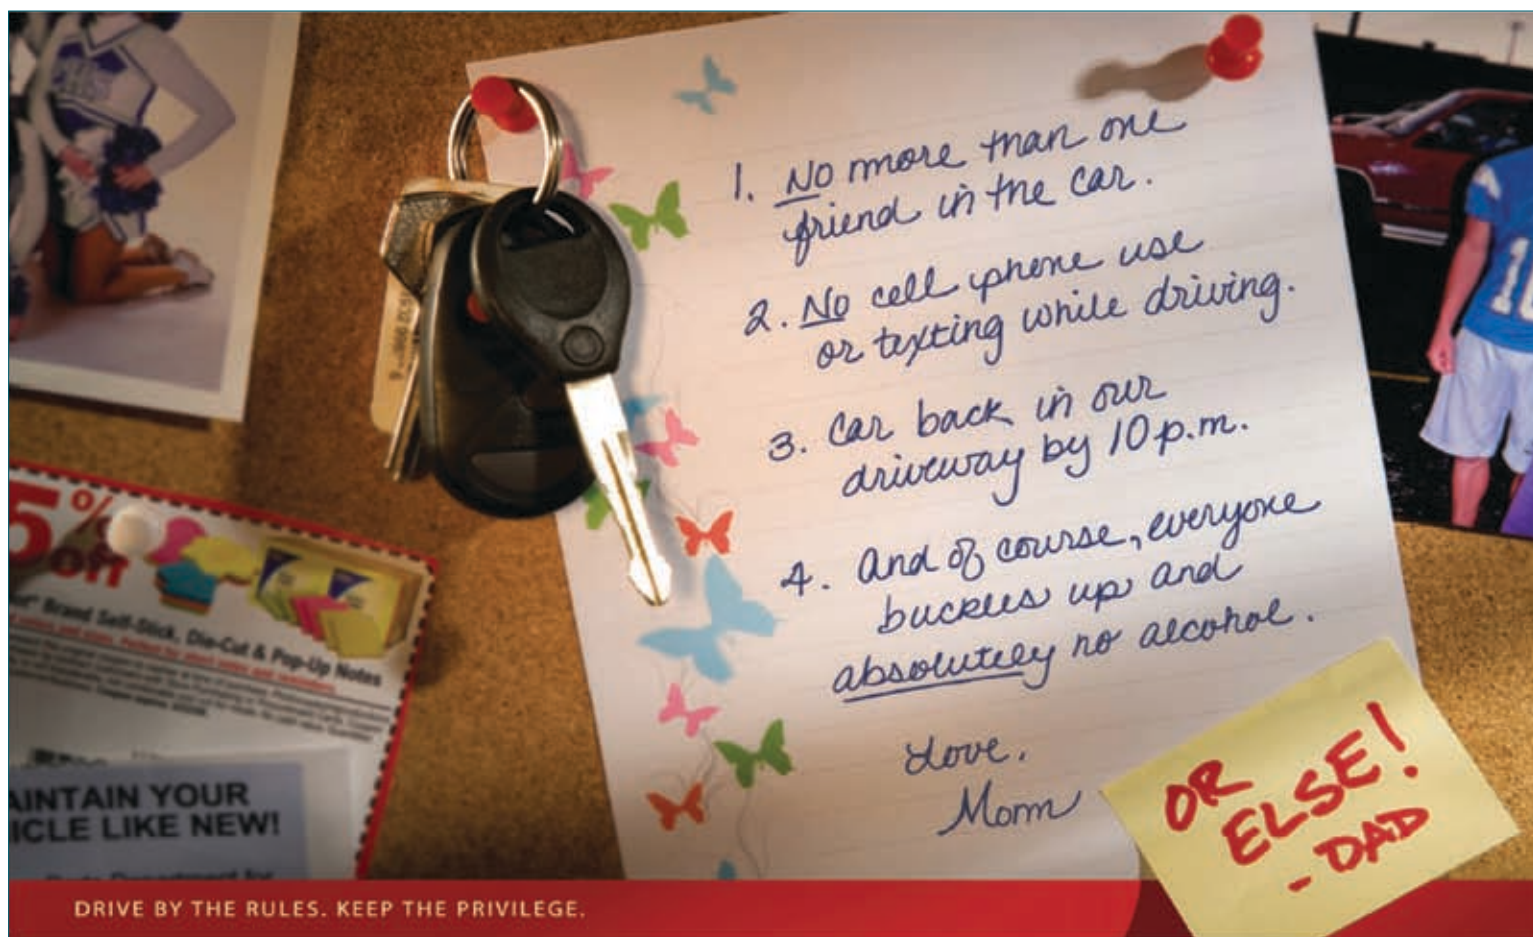 1. No more than one
friend in the car.
2. No cell phone use
or texting while driving.
3. Car back in our
driveway by 10 p.m.
4. And of course, everyone
buckles up and
absolutely no alcohol.
Love,
Mom
OR
ELSE!
- DAD
5%
off
Brand Self-Stick, Die-Cut & Pop-Up Notes
AINTAIN YOUR
ICLE LIKE NEW!
DRIVE BY THE RULES. KEEP THE PRIVILEGE.